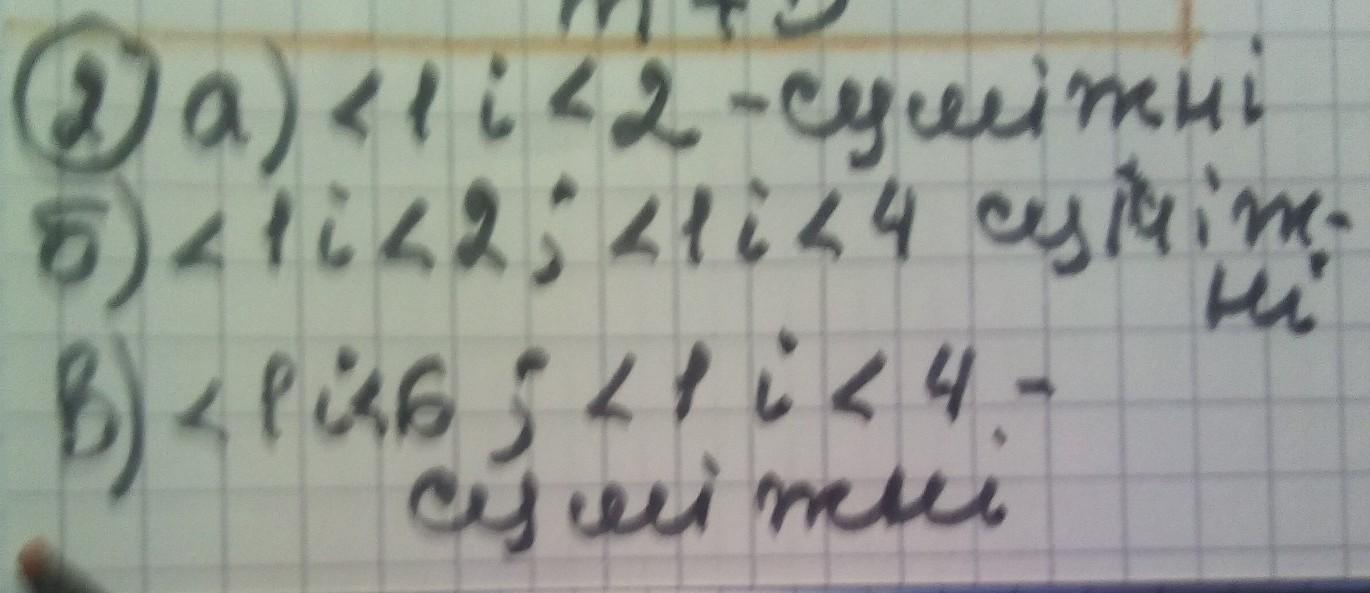 ② а) <1 і <2 - суміжні
б) <1 і <2 ; <1 і <4 суміж-
ні
в) <1 і <6 ; <1 і <4 -
суміжні